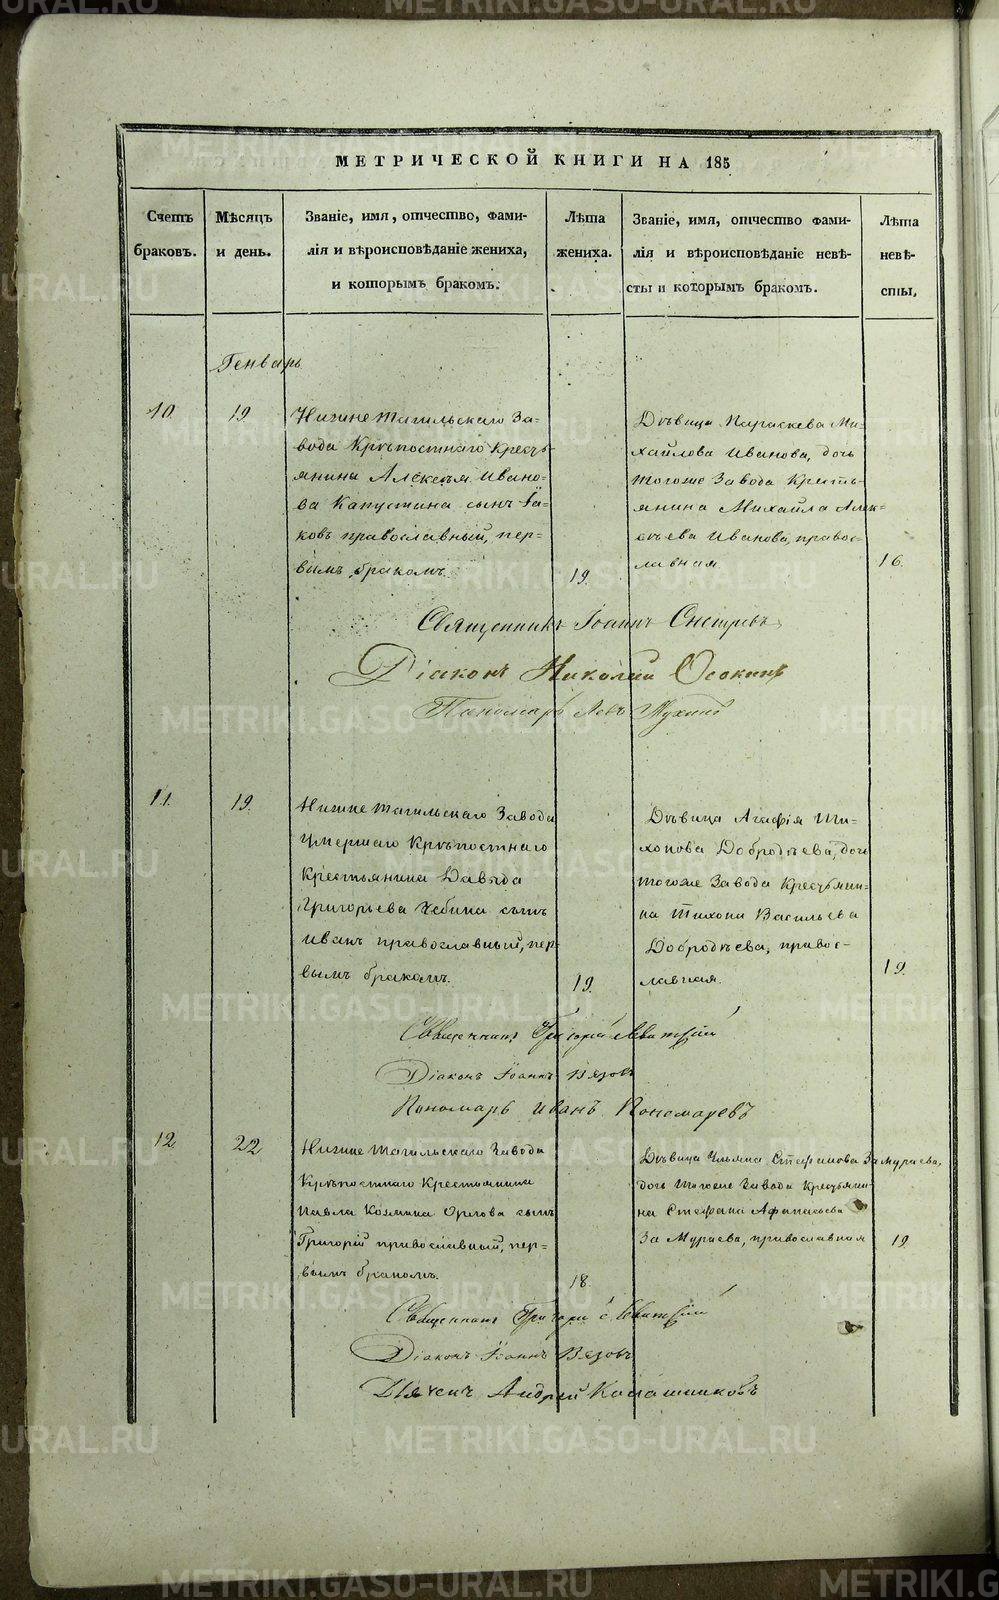 МЕТРИЧЕСКОЙ КНИГИ НА 185
Счетъ
браковъ.
Мѣсяцъ
и день.
Званіе, имя, отчество, фами-
лія и вѣроисповѣданіе жениха,
и которымъ бракомъ.
Лѣта
жениха.
Званіе, имя, отчество фами-
лія и вѣроисповѣданіе невѣ-
сты и которымъ бракомъ.
Лѣта
невѣ-
сты.
Генварь
10.
19.
Нижне Тагильскаго За-
вода Крѣпостнаго Кресть-
янина Алексѣя Ивано-
ва Капустина сынъ Іа-
ковъ православный, пер-
вымъ бракомъ.
19.
Дѣвица Параскева Ми-
хайлова Иванова, дочь
тогоже Завода Кресть-
янина Михайла Алек-
сѣева Иванова, правос-
лавная.
16.
Священникъ Іоаннъ
Діаконъ Николай Осокинъ
Пономарь Левъ
11.
19.
Нижне Тагильскаго Завода
Умершаго Крѣпостнаго
Крестьянина Давыда
Григорьева Чебина сынъ
Иванъ православный, пер-
вымъ бракомъ.
19.
Дѣвица Агафія Ти-
хонова Добродѣева, дочь
тогоже Завода Крестьяни-
на Тихона Васильева
Добродѣева, правос-
лавная.
19.
Священникъ Григорій Левитскій
Діаконъ Іоаннъ Вязовъ
Пономарь Иванъ Пономаревъ
12.
22
Нижне Тагильскаго Завода
Крѣпостнаго Крестьянина
Павла Козмина Орлова сынъ
Григорій православный, пер-
вымъ бракомъ.
18.
Дѣвица Ульяна Стефанова Замураева,
дочь тогоже Завода Крестьяни-
на Стефана Афанасьева
Замураева, православная
19.
Священникъ Григорій Левитскій
Діаконъ Іоаннъ Вязовъ
Дьячекъ Андрей Калашниковъ
METRIKI.GASO-URAL.RU